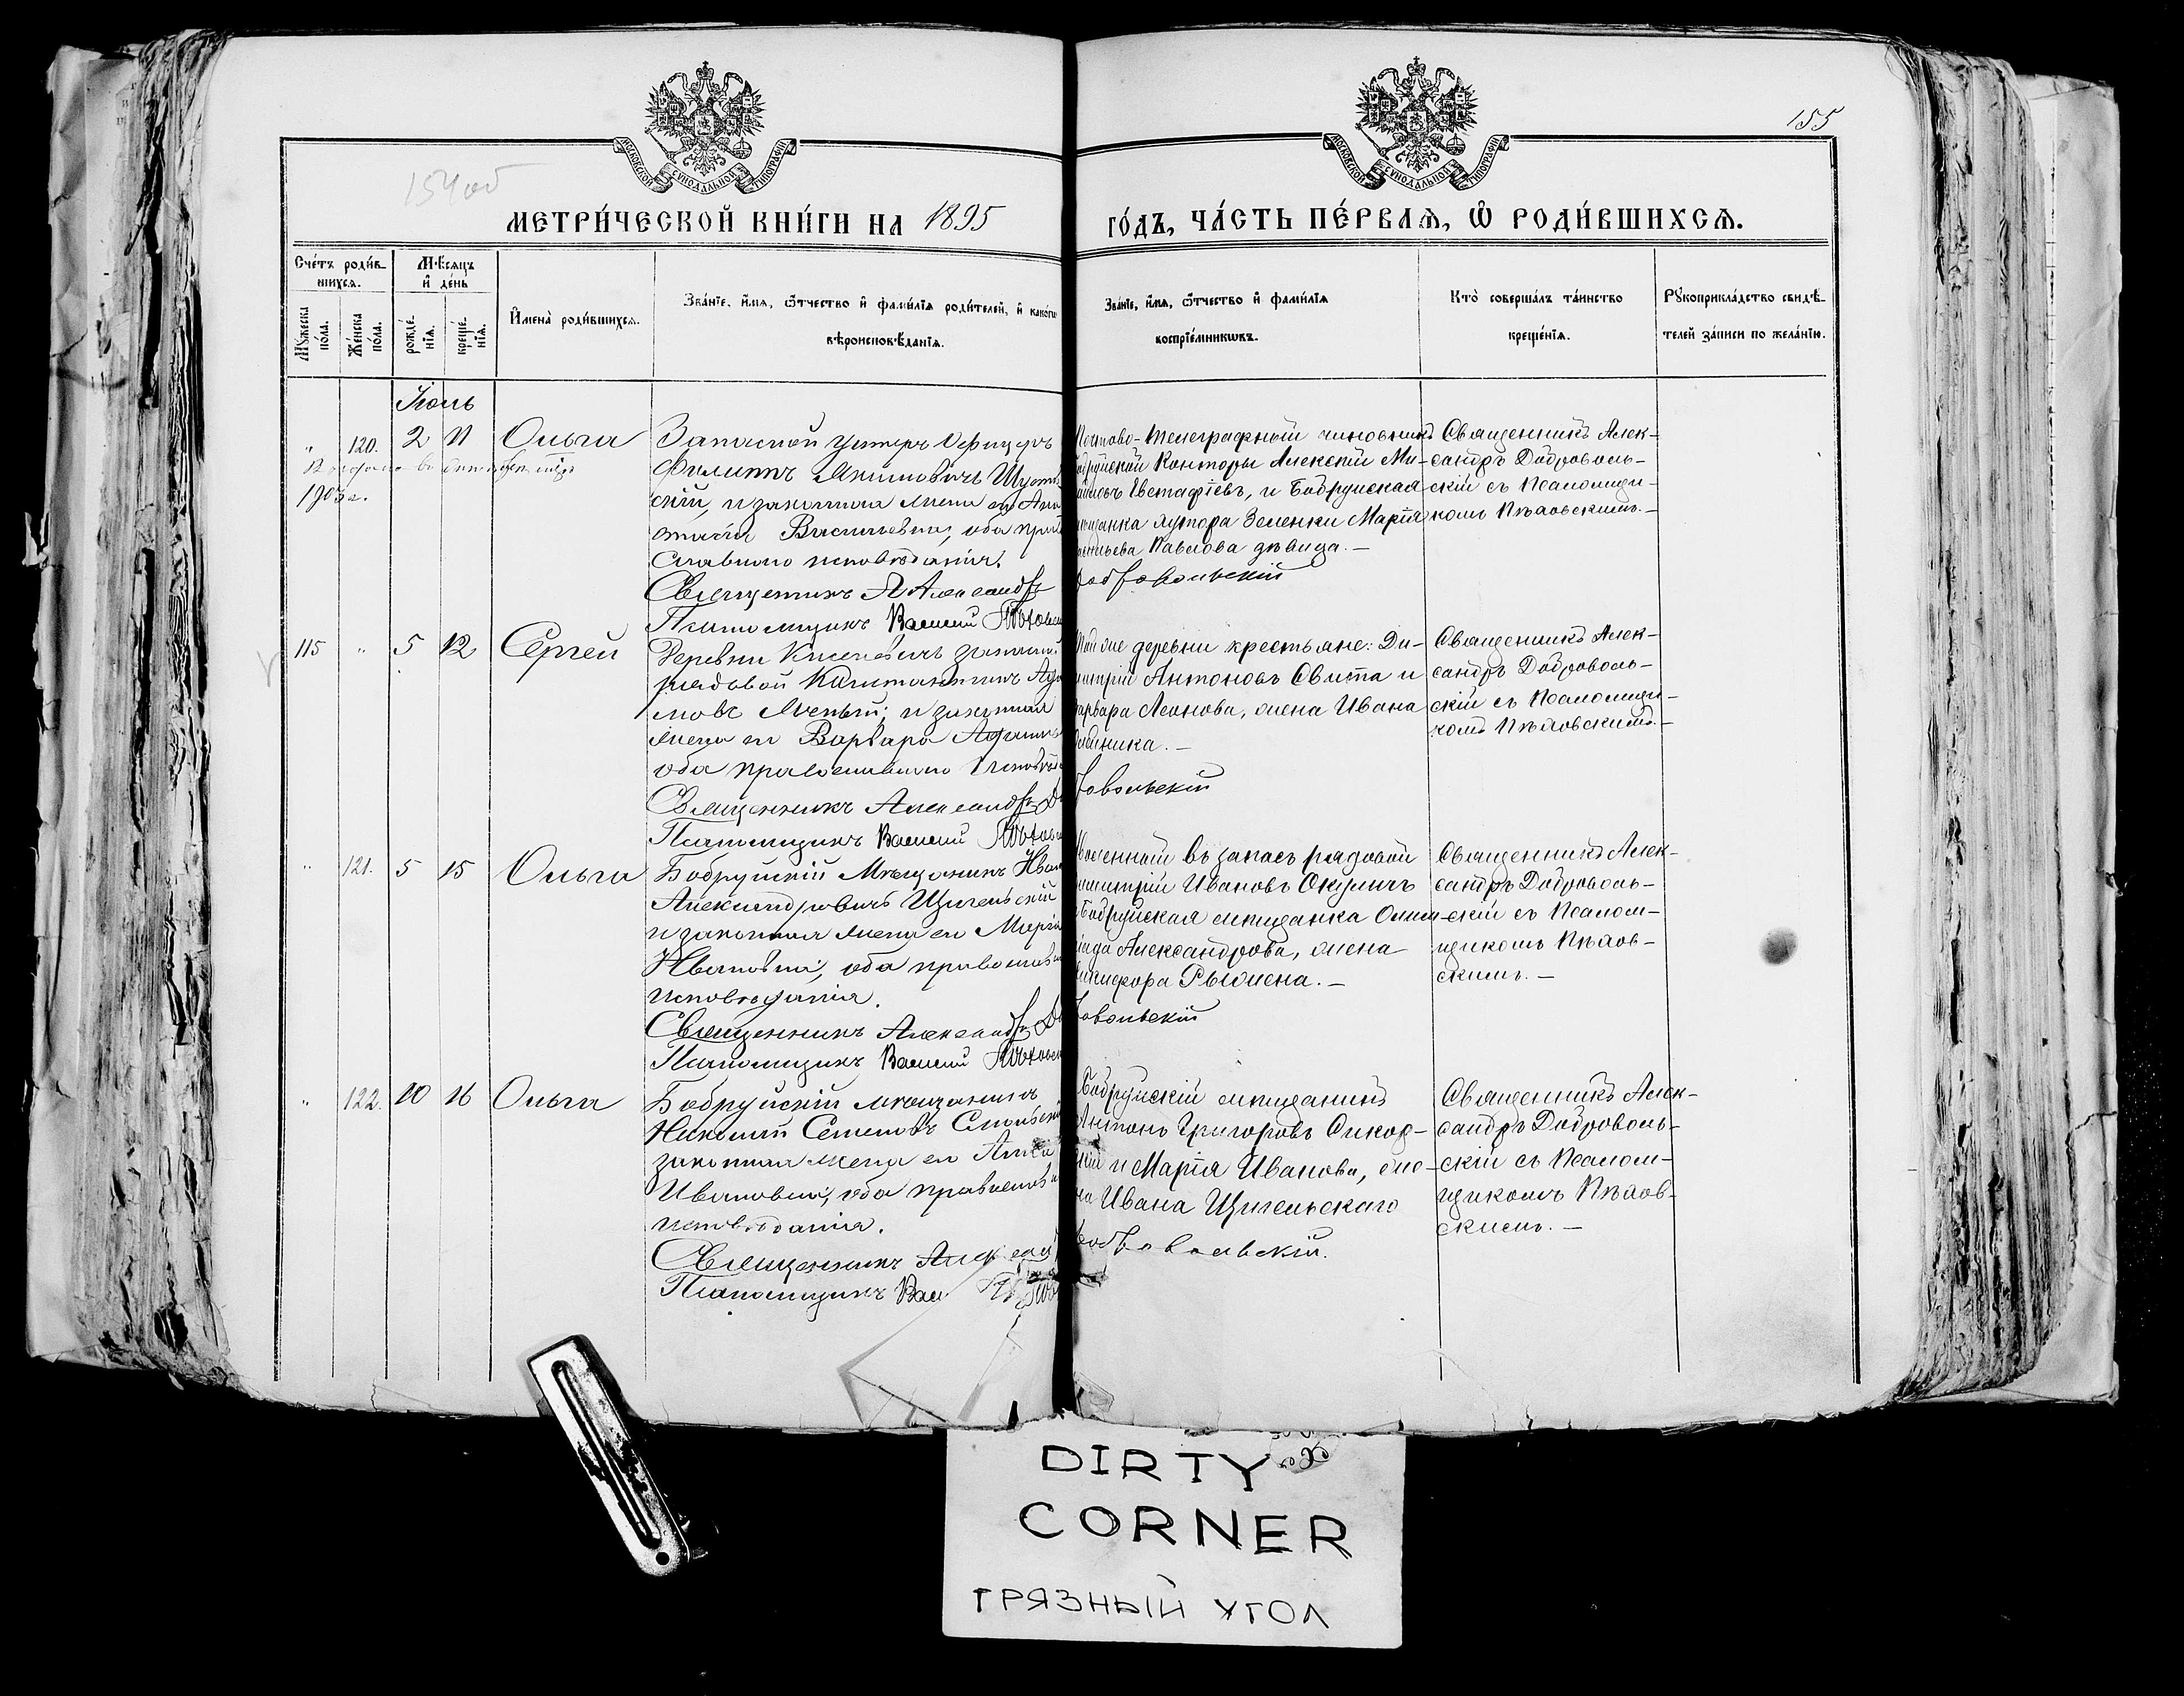 155
154об
МОСКОВСКОЙ СѴНОДАЛЬНОЙ ТИПОГРАФІИ
МОСКОВСКОЙ СѴНОДАЛЬНОЙ ТИПОГРАФІИ
МЕТРИ́ЧЕСКОЙ КНИ́ГИ НА 1895 ГО́ДЪ, ЧА́СТЬ ПЕ́РВАѦ, Ѡ҆ РОДИ́ВШИХСѦ.
Сче́тъ роди́в-
шихсѧ.
Мꙋ́жеска
по́ла.
Же́нска
по́ла.
Мѣ́сѧцъ
и҆ де́нь
рожде́-
нїѧ.
креще́-
нїѧ.
И҆мена̀ роди́вшихсѧ.
Зва́нїе, и҆́мѧ, ѻ҆́тчество и҆ фами́лїѧ роди́телей, и҆ како́гѡ
вѣроисповѣ́данїѧ.
Зва́нїе, и҆́мѧ, ѻ҆́тчество и҆ фами́лїѧ
воспрїе́мникѡвъ.
Кто̀ соверша́лъ та́инство
креще́нїѧ.
Рꙋкоприкла́дство свидѣ́-
телей за́писи по жела́нїю.
Іюль
" 120. 2 11 Ольга
1903 г.
Запасной унтеръ офицеръ
Филиппъ
скій, и законная жена его Ана
стасія Васильевна, оба прав
славнаго исповѣданія.
Священникъ Александръ
Псаломщикъ Василій
Почтово-телеграфный чиновникъ
Конторы Алексѣй Ми-
Евстафіевъ, и Бобруйская
хутора Зеленки Марія
Павлова дѣвица. —
Добровольскій
Священникъ Алек-
сандръ Доброволь-
скій съ Псаломщи-
комъ Пѣховскимъ. —
115 " 5 12 Сергей
Деревни
рядовой Константинъ
и законная
жена его Варвара
оба православнаго
Священникъ Александръ До
Псаломщикъ Василій
Той же деревни крестьяне: Ди-
митрій Антоновъ Свита и
Варвара Леонова, жена Ивана
бровольскій
Священникъ Алек-
сандръ Доброволь-
скій съ Псаломщи-
комъ Пѣховскимъ. —
" 121. 5 15 Ольга
Бобруйскій Мѣщанинъ Иван
Александровичъ Щигельскій
и законная жена его Марія
Ивановна, оба православн
исповѣданія.
Священникъ Александръ До
Псаломщикъ Василій
въ запасъ рядовой
Димитрій Ивановъ Окуличъ
и Бобруйская мѣщанка Олим-
піада Александрова, жена
Никифора Рыжена. —
бровольскій
Священникъ Алек-
сандръ Доброволь-
скій съ Псалом-
щикомъ Пѣхов-
скимъ. —
" 122. 10 16 Ольга
Бобруйскій мѣщанинъ
Николай Семеновъ
законная жена его Анна
Ивановна, оба православн
исповѣданія.
Священникъ
Псаломщикъ
Бобруйскій мѣщанинъ
Антонъ Григоровъ Сикор-
скій и Марія Иванова, же-
на Ивана Щигельскаго
Добровольскій.
Священникъ Алек-
сандръ Доброволь-
скій съ Псалом-
щикомъ Пѣхов-
скимъ. —
DIRTY
CORNER
ГРЯЗНЫЙ УГОЛ